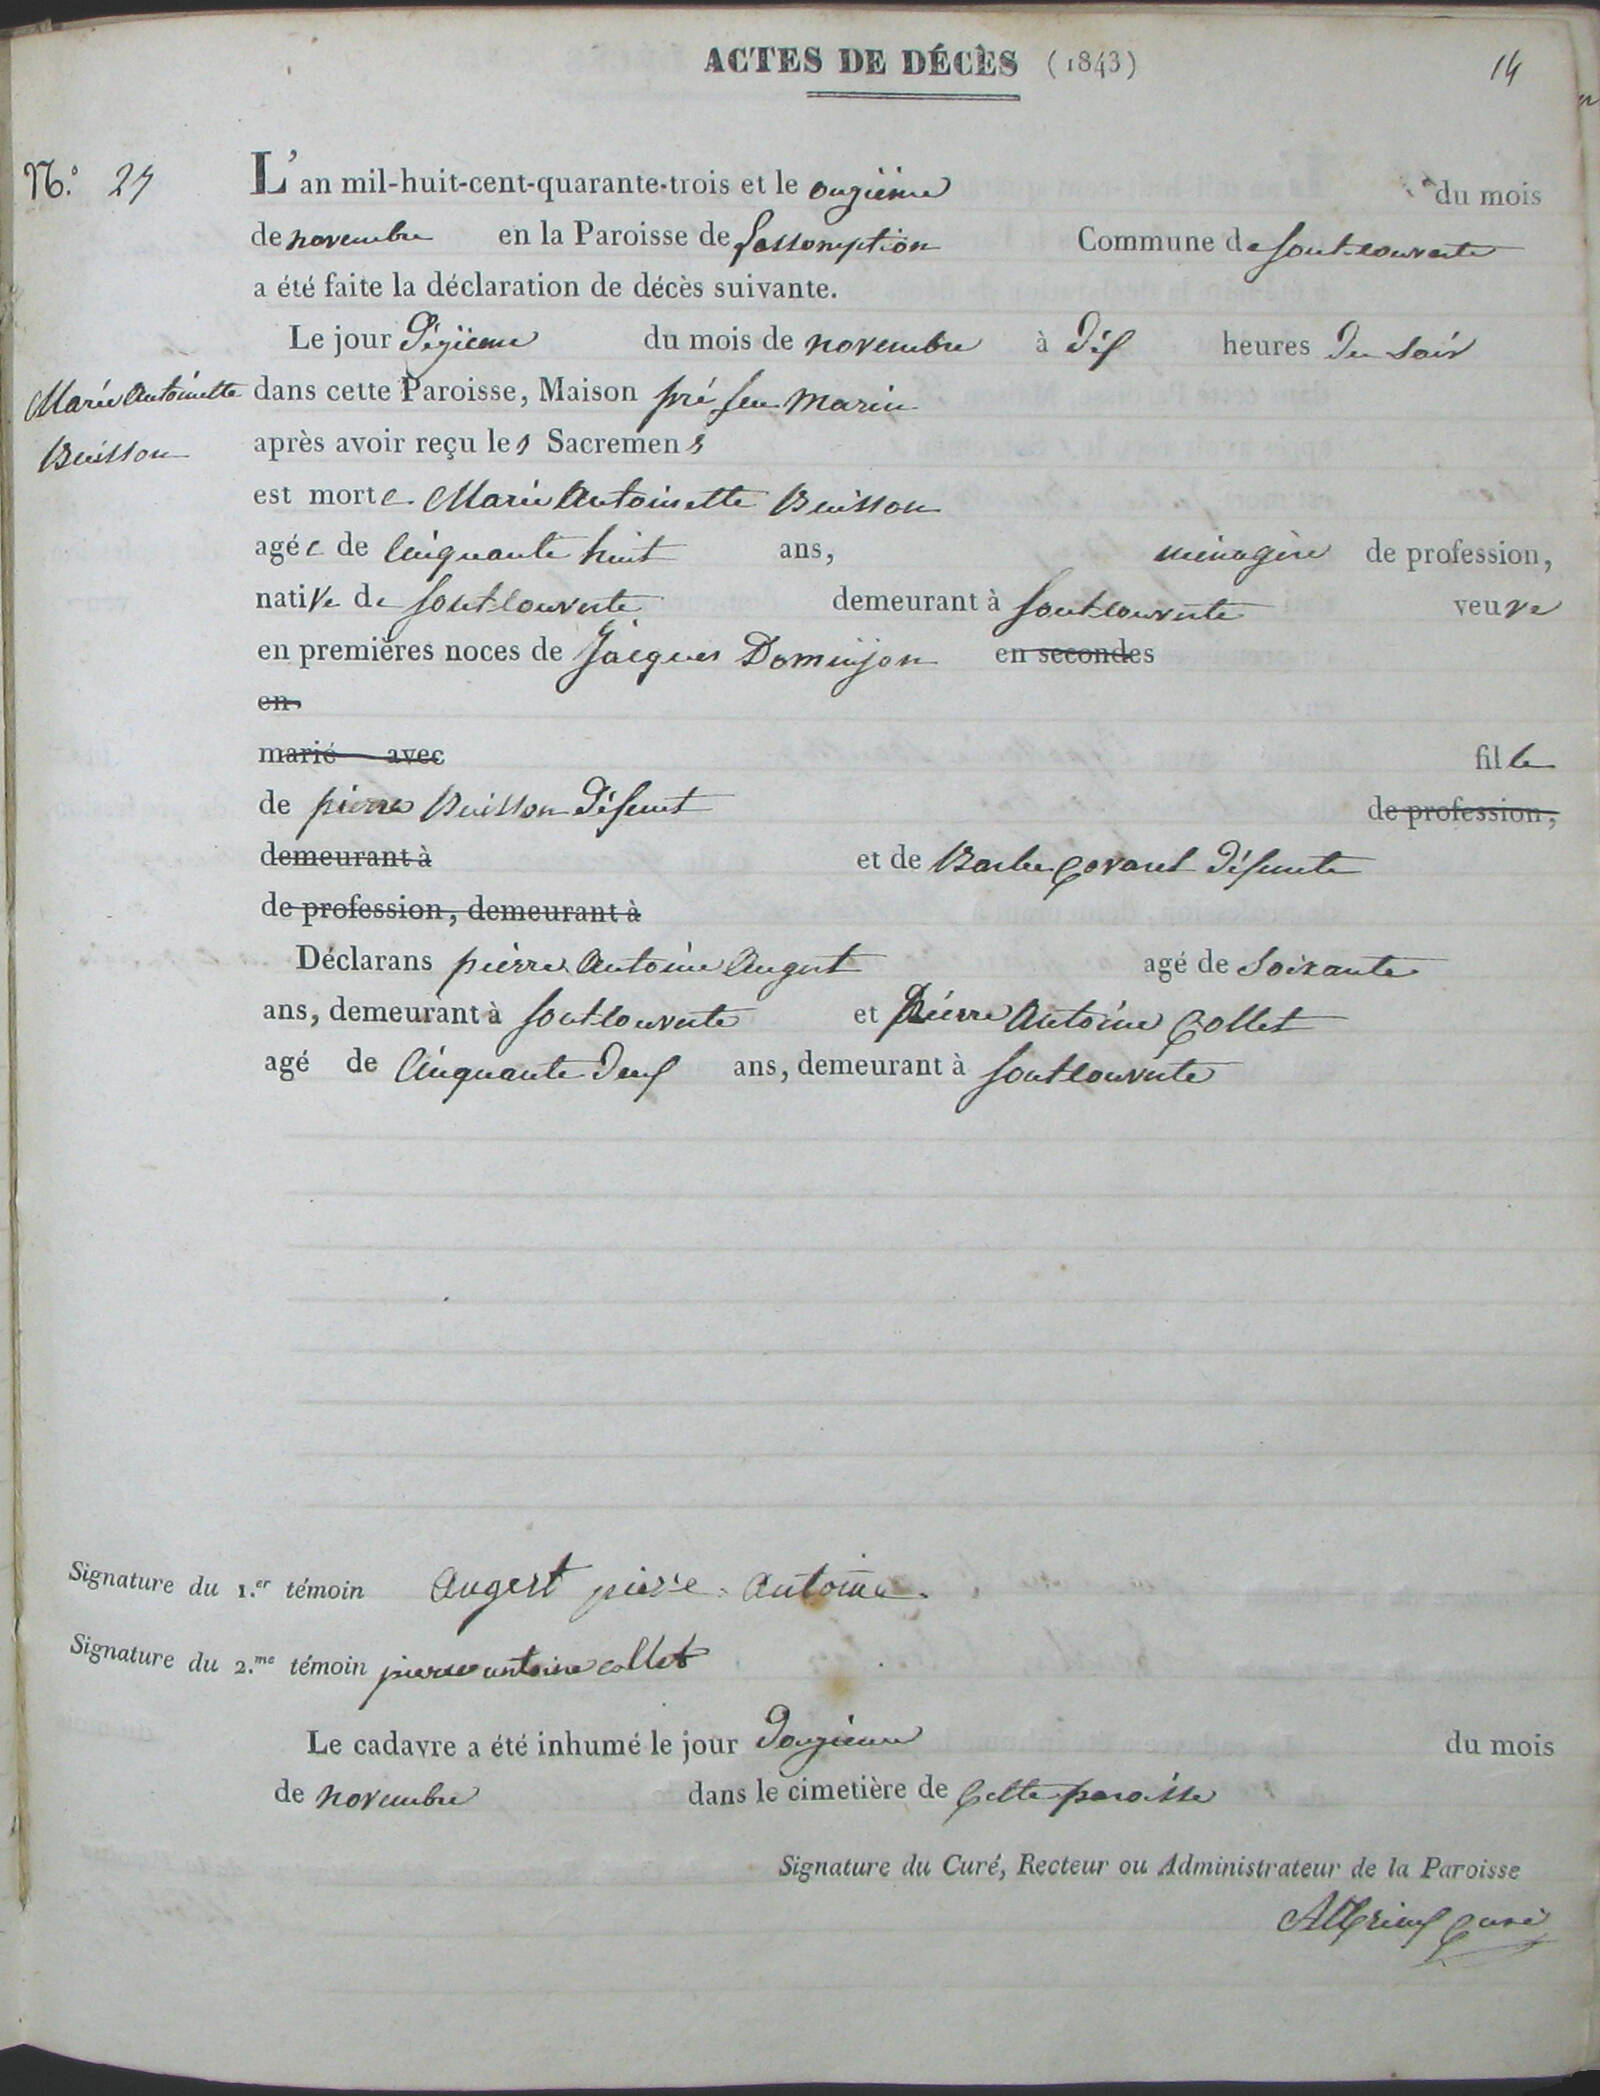 ACTES DE DÉCÈS (1843) 14
N.º 27 L'an mil-huit-cent-quarante-trois et le onzième du mois
de novembre en la Paroisse de Lassomption Commune de fontcouverte
a été faite la déclaration de décès suivante.
Le jour dizième du mois de novembre à dix heures du soir
Marie Antoinette dans cette Paroisse, Maison pré feu marin
Buisson après avoir reçu les Sacremens
est morte Marie Antoinette Buisson
agée de Cinquante huit ans, ménagère de profession,
native de fontcouverte demeurant à fontcouverte veuve
en premières noces de Jacques Dominjon en secondes
en
marié avec fille
de pierre Buisson défunt de profession,
demeurant à et de Barbe Covarel défunte
de profession, demeurant à
Déclarans pierre Antoine Augert agé de Soixante
ans, demeurant à fontcouverte et Pierre Antoine Collet
agé de Cinquante deux ans, demeurant à fontcouverte
Signature du 1.er témoin augert pierre antoine
Signature du 2.me témoin pierre antoine collet
Le cadavre a été inhumé le jour douzième du mois
de novembre dans le cimetière de Cette paroisse
Signature du Curé, Recteur ou Administrateur de la Paroisse
Curé